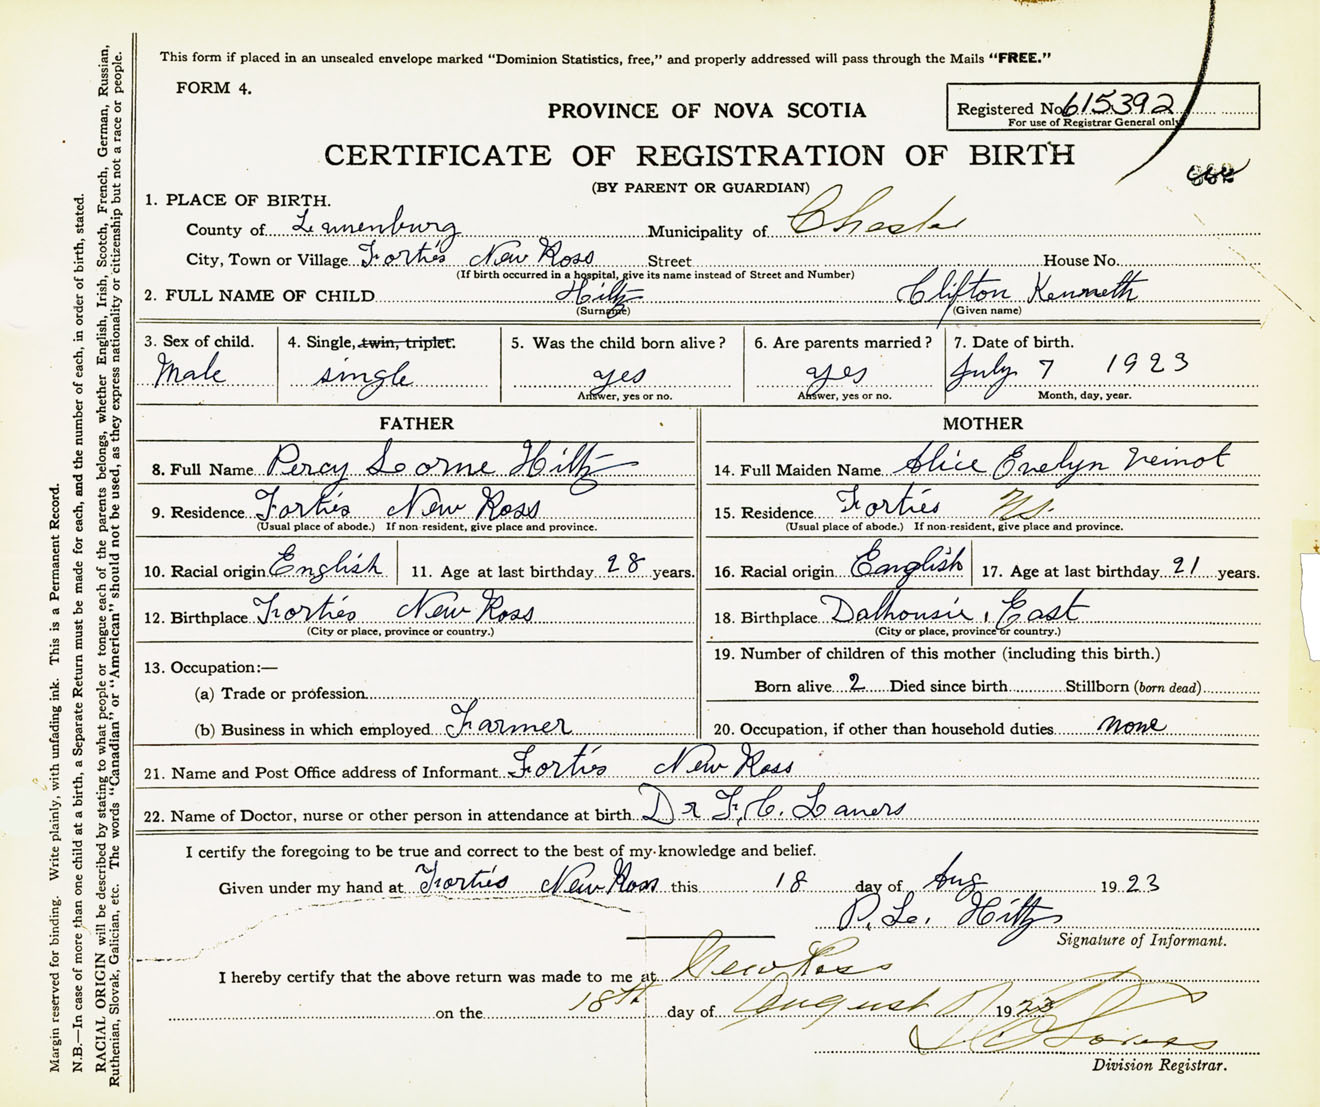 This form if placed in an unsealed envelope marked "Dominion Statistics, free," and properly addressed will pass through the Mails "FREE."
FORM 4.
PROVINCE OF NOVA SCOTIA
Registered No. 615392
For use of Registrar General only
CERTIFICATE OF REGISTRATION OF BIRTH
(BY PARENT OR GUARDIAN)
1. PLACE OF BIRTH.
County of Lunenburg Municipality of Chester
City, Town or Village Forties New Ross Street House No.
(If birth occurred in a hospital, give its name instead of Street and Number)
2. FULL NAME OF CHILD Hiltz Clifton Kenneth
(Surname) (Given name)
3. Sex of child. 4. Single, twin, triplet. 5. Was the child born alive? 6. Are parents married? 7. Date of birth.
Male single yes yes July 7 1923
Answer, yes or no. Answer, yes or no. Month, day, year.
FATHER MOTHER
8. Full Name Percy Lorne Hiltz 14. Full Maiden Name Alice Evelyn Veinot
9. Residence Forties New Ross 15. Residence Forties N.S.
(Usual place of abode.) If non-resident, give place and province. (Usual place of abode.) If non-resident, give place and province.
10. Racial origin English 11. Age at last birthday 28 years. 16. Racial origin English 17. Age at last birthday 21 years.
12. Birthplace Forties New Ross 18. Birthplace Dalhousie, East
(City or place, province or country.) (City or place, province or country.)
13. Occupation:— 19. Number of children of this mother (including this birth.)
(a) Trade or profession Born alive 2 Died since birth Stillborn (born dead)
(b) Business in which employed Farmer 20. Occupation, if other than household duties none
21. Name and Post Office address of Informant Forties New Ross
22. Name of Doctor, nurse or other person in attendance at birth Dr F. C.
I certify the foregoing to be true and correct to the best of my knowledge and belief.
Given under my hand at Forties New Ross this 18 day of Aug 1923
P. L. Hiltz
Signature of Informant.
I hereby certify that the above return was made to me at New Ross
on the 18th day of August 1923
Division Registrar.
Margin reserved for binding. Write plainly, with unfading ink. This is a Permanent Record.
N.B.—In case of more than one child at a birth, a Separate Return must be made for each, and the number of each, in order of birth, stated.
RACIAL ORIGIN will be described by stating to what people or tongue each of the parents belongs, whether English, Irish, Scotch, French, German, Russian,
Ruthenian, Slovak, Galician, etc. The words "Canadian" or "American" should not be used, as they express nationality or citizenship but not a race or people.